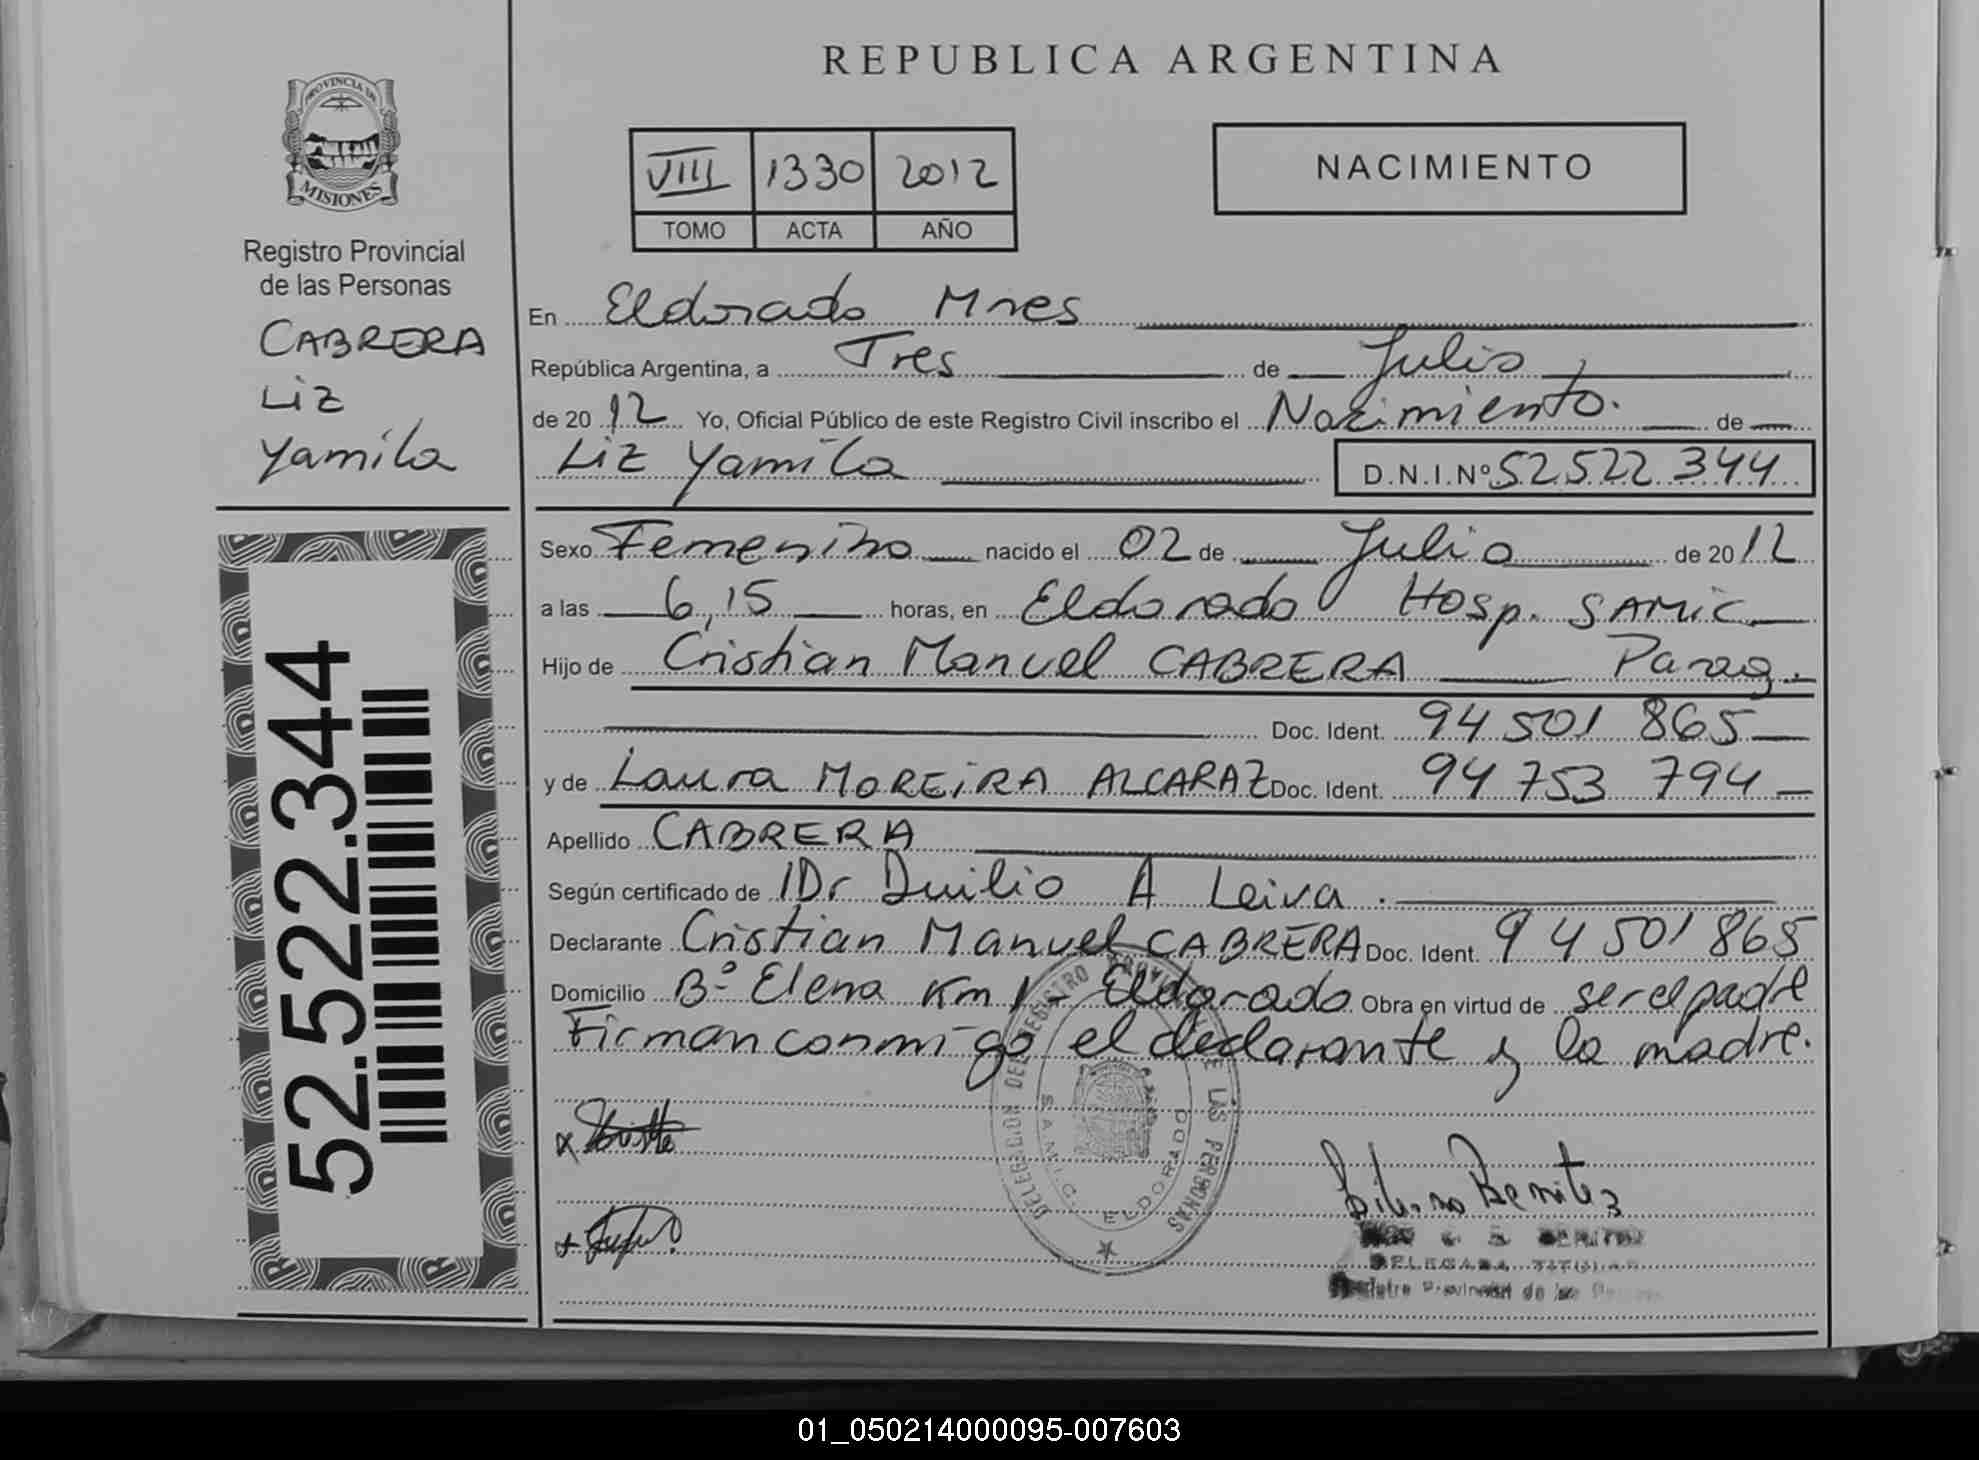 REPUBLICA ARGENTINA
PROVINCIA DE
MISIONES
Registro Provincial
de las Personas
CABRERA
Liz
Yamila
52.522.344
VIII 1330 2012
TOMO ACTA AÑO
NACIMIENTO
En Eldorado Mnes
República Argentina, a Tres de Julio,
de 2012 Yo, Oficial Público de este Registro Civil inscribo el Nacimiento. de
Liz Yamila D.N.I.Nº 52.522 344
Sexo Femenino nacido el 02 de Julio de 2012
a las 6,15 horas, en Eldorado Hosp. SAMIC
Hijo de Cristian Manuel CABRERA Parag.
Doc. Ident. 94 501 865
y de Laura MOREIRA ALCARAZ Doc. Ident. 94 753 794
Apellido CABRERA
Según certificado de Dr Duilio A Leiva.
Declarante Cristian Manuel CABRERA Doc. Ident. 94 501 865
Domicilio Bº Elena Km 1- Eldorado Obra en virtud de ser el padre
Firman conmigo el declarante y la madre.
DELEGACION DEL REGISTRO PROVINCIAL DE LAS PERSONAS
S.A.M.I.C. ELDORADO
Benitez
BENITEZ
DELEGADA TITULAR
Registro Provincial de las
01_050214000095-007603